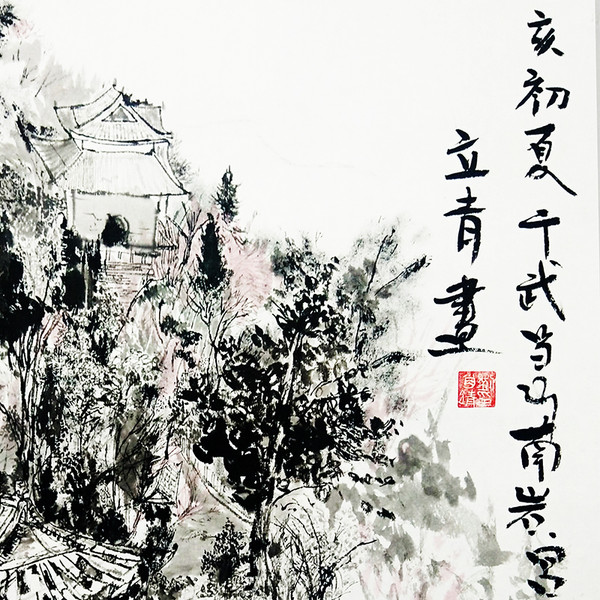 亥初夏于武当山南岩宫
立青画